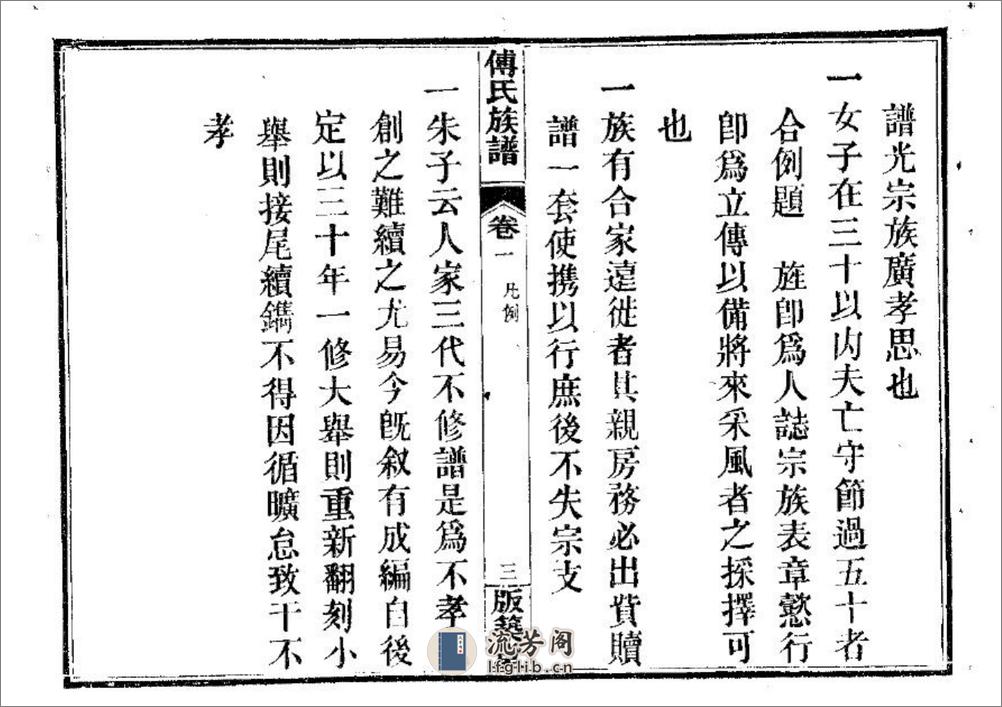 譜光宗族廣孝思也
一女子在三十以內夫亡守節過五十者
合例題 旌卽爲人誌宗族表章懿行
卽爲立傳以備將來采風者之採擇可
也
一族有合家遠徙者其親房務必出貲贖
譜一套使攜以行庶後不失宗支
傅氏族譜
卷一 凡例
三
版築
一朱子云人家三代不修譜是爲不孝
創之難續之尤易今旣叙有成編自後
定以三十年一修大舉則重新翻刻小
舉則接尾續鐫不得因循曠怠致干不
孝
流芳阁
lfglib.cn